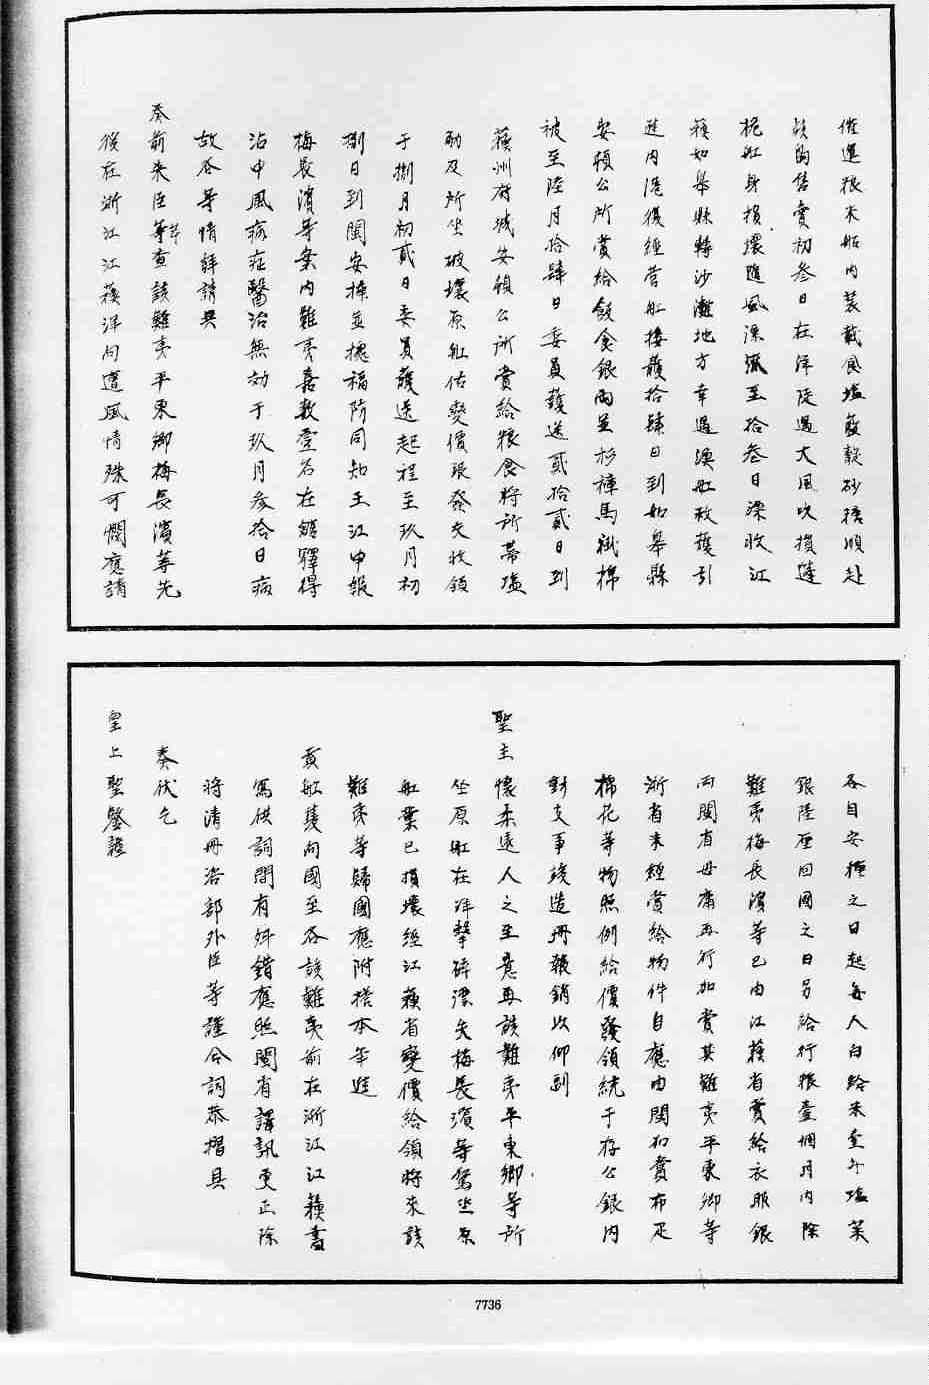 催還粮米船内裝載食塩廢靛砂糖順赴
銷售賣初叁日在洋陡遇大風吹損篷
桅舡身損壞隨風漂流至拾叁日漂收江
蘓如皋縣轉沙灘地方幸遇漁舡救護引
進内港復經營舡接護拾肆日到如皋縣
安頓公所賞給飯食銀兩並衫褲馬褂棉
被至陸月拾肆日委員護送貳拾貳日到
蘓州府城安頓公所賞給粮食將所帶塩
觔及所坐破壞原舡估變價艰發交收領
于捌月初貳日委員護送起程至玖月初
捌日到閩安揷並據福防同知王江申報
梅長濱等案内難夷嘉數壹名在館驛得
沾中風病症醫治無効于玖月叁拾日病
故各等情詳請具
奏前來臣等查該難夷平東鄉梅長濱等先
後在浙江江蘓洋向遭風情殊可憫應請
各自安揷之日起每人日給米壹升塩菜
銀陸厘回國之日另給行粮壹個月内除
難夷梅長濱等已由江蘓省賞給衣服銀
兩閩省毋庸再行加賞其難夷平東鄉等
浙省未經賞給物件自應由閩加賞布疋
棉花等物照例給價發領統于存公銀内
動支事竣造册報銷以仰副
聖主懷柔遠人之至意再該難夷平東鄉等所
坐原舡在洋擊碎漂失梅長濱等駕坐原
舡業已損壞經江蘓省變價給領將來該
難夷等歸國應附搭本年進
貢舡隻向國至各該難夷前在浙江江蘓書
寫供詞間有舛錯應照閩省譯訊更正除
將清册咨部外臣等謹合詞恭摺具
奏伏乞
皇上聖鑒謹
7736